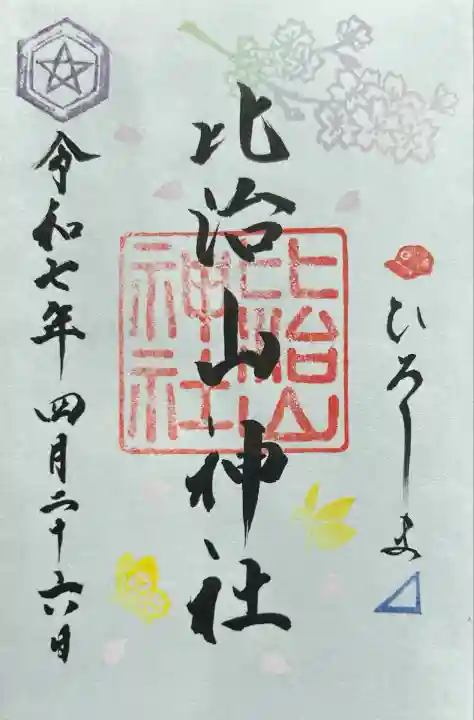 ひろしま
比治山神社
比治山
神社
令和七年四月二十六日